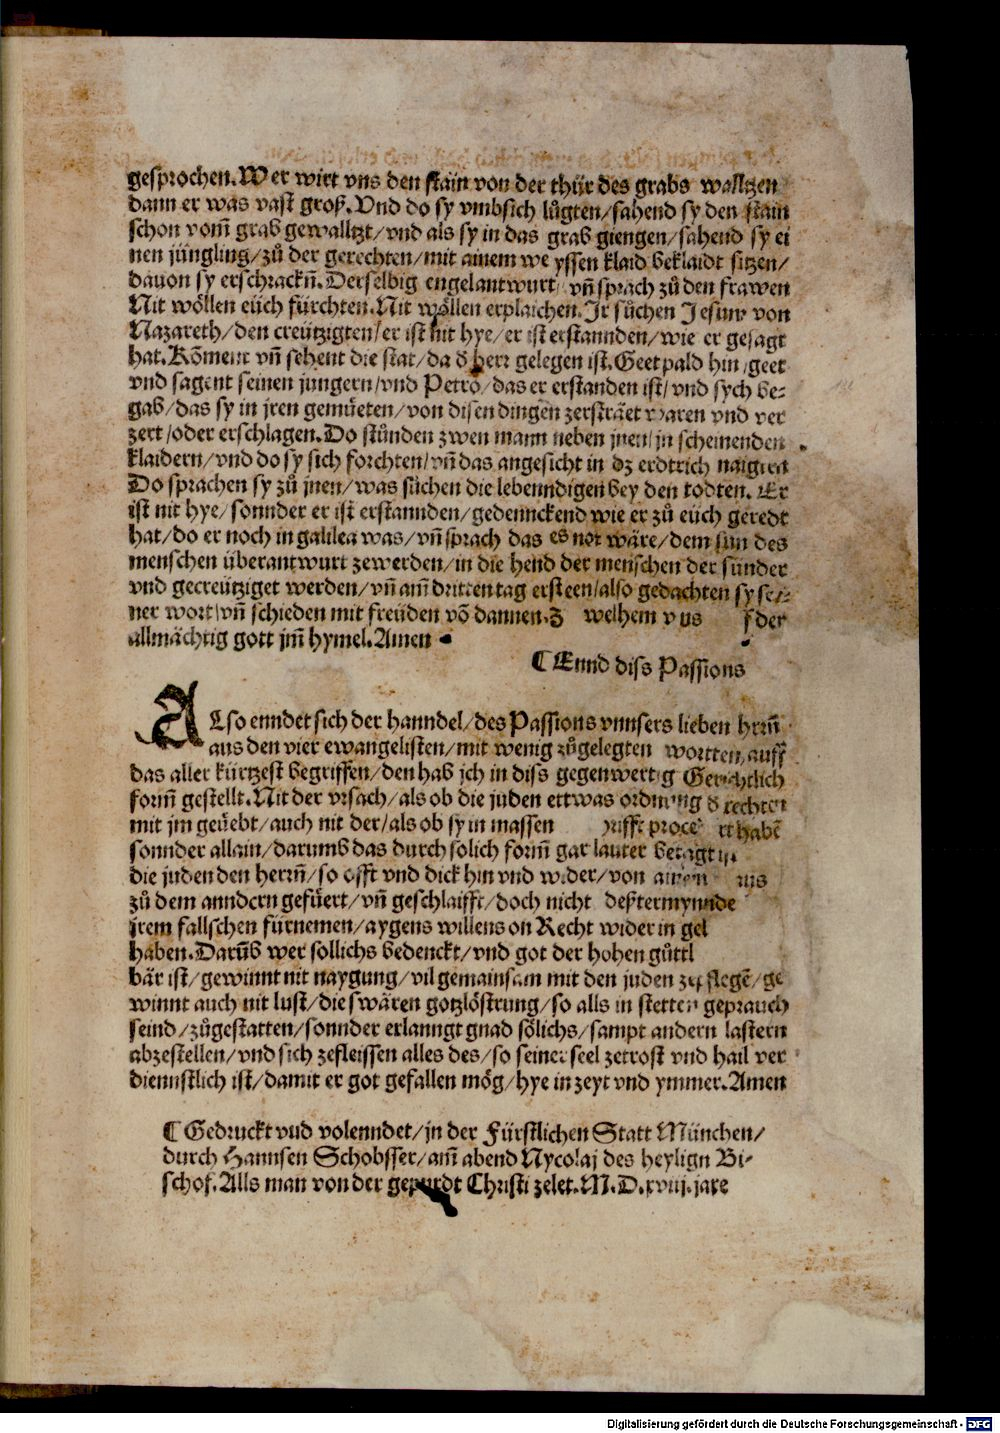 gesprochen. Wer wirt vns den stain von der thür des grabs walltzen
dann er was vast groß. Vnd do sy vmbsich lůgten/ sahend sy den stain
schon vom̃ grab gewalltzt/ vnd als sy in das grab giengen/ sahend sy ei
nen jüngling/ zů der gerechten/ mit ainem weyssen klaid beklaidt sitzen/
dauon sy erschrackñ. Derselbig engel antwurt/ vñ sprach zů den frawen
Nit wöllen eüch fürchten. Nit wöllen erplaichen. Jr sůchen Jesum von
Nazareth/ den creützigten/ er ist nit hye/ er ist erstannden/ wie er gesagt
hat. Kom̃ent vñ sehent die stat/ da d̕ herr gelegen ist. Geet pald hin/ geet
vnd sagent seinen jungern/ vnd Petro/ das er erstanden ist/ vnd sych be⸗
gab/ das sy in jren gemüeten/ von disen dingen zersträet waren vnd ver
zert/ oder erschlagen. Do stůnden zwen mann neben jnen/ jn scheinenden
klaidern/ vnd do sy sich forchten/ vñ das angesicht in dz erdtrich naigten
Do sprachen sy zů jnen/ was sůchen die lebenndigen bey den todten. Er
ist nit hye/ sonnder er ist erstannden/ gedennckend wie er zů eüch geredt
hat/ do er noch in galilea was/ vñ sprach das es not wäre/ dem sun des
menschen überantwurt zewerden/ in die hend der menschen der sünder
vnd gecreütziget werden/ vñ am̃ dritten tag ersteen/ also gedachten sy sei⸗
ner wort/ vñ schieden mit freüden võ dannen. Z welhem vns der
allmächtig gott jm̃ hymel. Amen
¶ Ennd diss Passions
Also enndet sich der hanndel/ des Passions vnnsers lieben herrñ
aus den vier ewangelisten/ mit wenig zůgelegten wortten/ auff
das aller kürtzest begriffen/ den hab jch in diss gegenwertig Gerichtlich
form̃ gestellt. Nit der vrsach/ als ob die juden ettwas ordnung d̕ rechten
mit jm geüebt/ auch nit der/ als ob sy in massen habẽ
sonnder allain/ darumb das durch solich form̃ gar lauter betagt
die juden den herrñ/ so offt vnd dick hin vnd wider/ von ainem
zů dem anndern gefüert/ vñ geschlaifft/ doch nicht destermynnde
jrem fallschen fürnemen/ aygens willens on Recht wider in gel
haben. Darüb wer sollichs bedenckt/ vnd got der hohen güttl
bär ist/ gewinnt nit naygung/ vil gemainsam mit den juden zepflegẽ/ ge
winnt auch nit lust/ die swären gotzlöstrung/ so alls in stetten geprauch
seind/ zůgestatten/ sonnder erlanngt gnad sölichs/ sampt andern lastern
abzestellen/ vnd sich zefleissen alles des/ so seiner seel zetrost vnd hail ver
diennstlich ist/ damit er got gefallen mög/ hye in zeyt vnd ymmer. Amen
¶ Gedruckt vnd volenndet/ jn der Fürstlichen Statt München/
durch Hannsen Schobsser/ am̃ abend Nycolaj des heylign Bi⸗
schof. Alls man von der gepurdt Christi zelet. M. D. xviij. jare
Digitalisierung gefördert durch die Deutsche Forschungsgemeinschaft - DFG